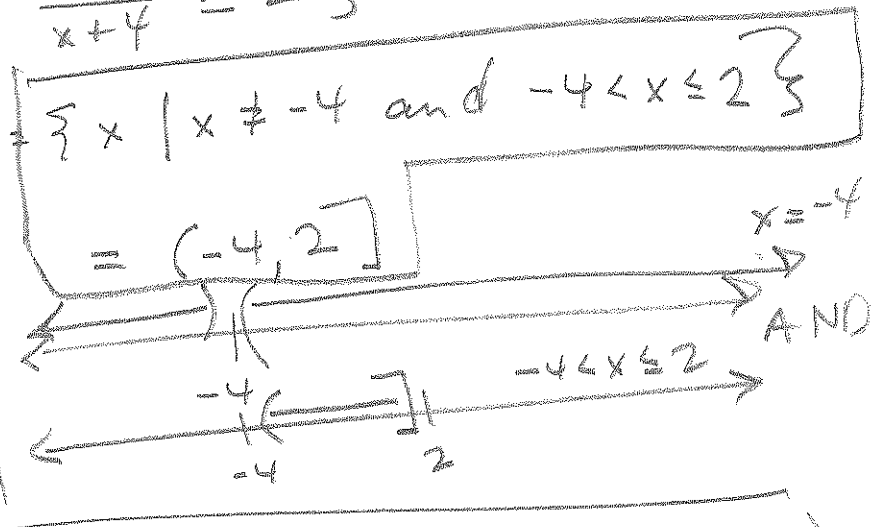 x+4
{ x | x ≠ -4 and -4 < x ≤ 2 }
= (-4, 2]
x = -4
AND
-4
-4 < x ≤ 2
-4
2